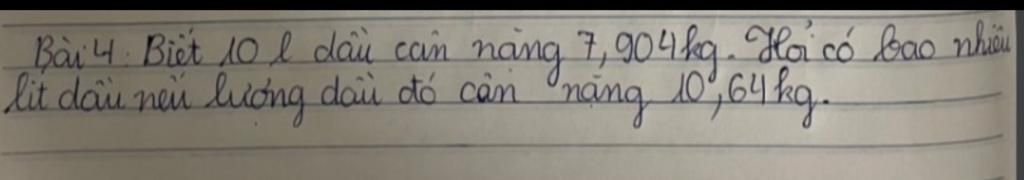 Bài 4: Biết 10 l dầu cân nặng 7,904kg. Hỏi có bao nhiêu
lít dầu nếu lượng dầu đó cân nặng 10,64kg.